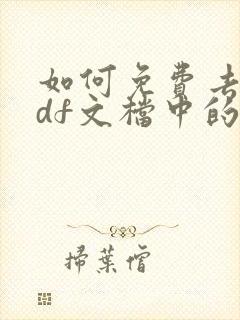 如何免費去
df文檔中的
掃葉僧